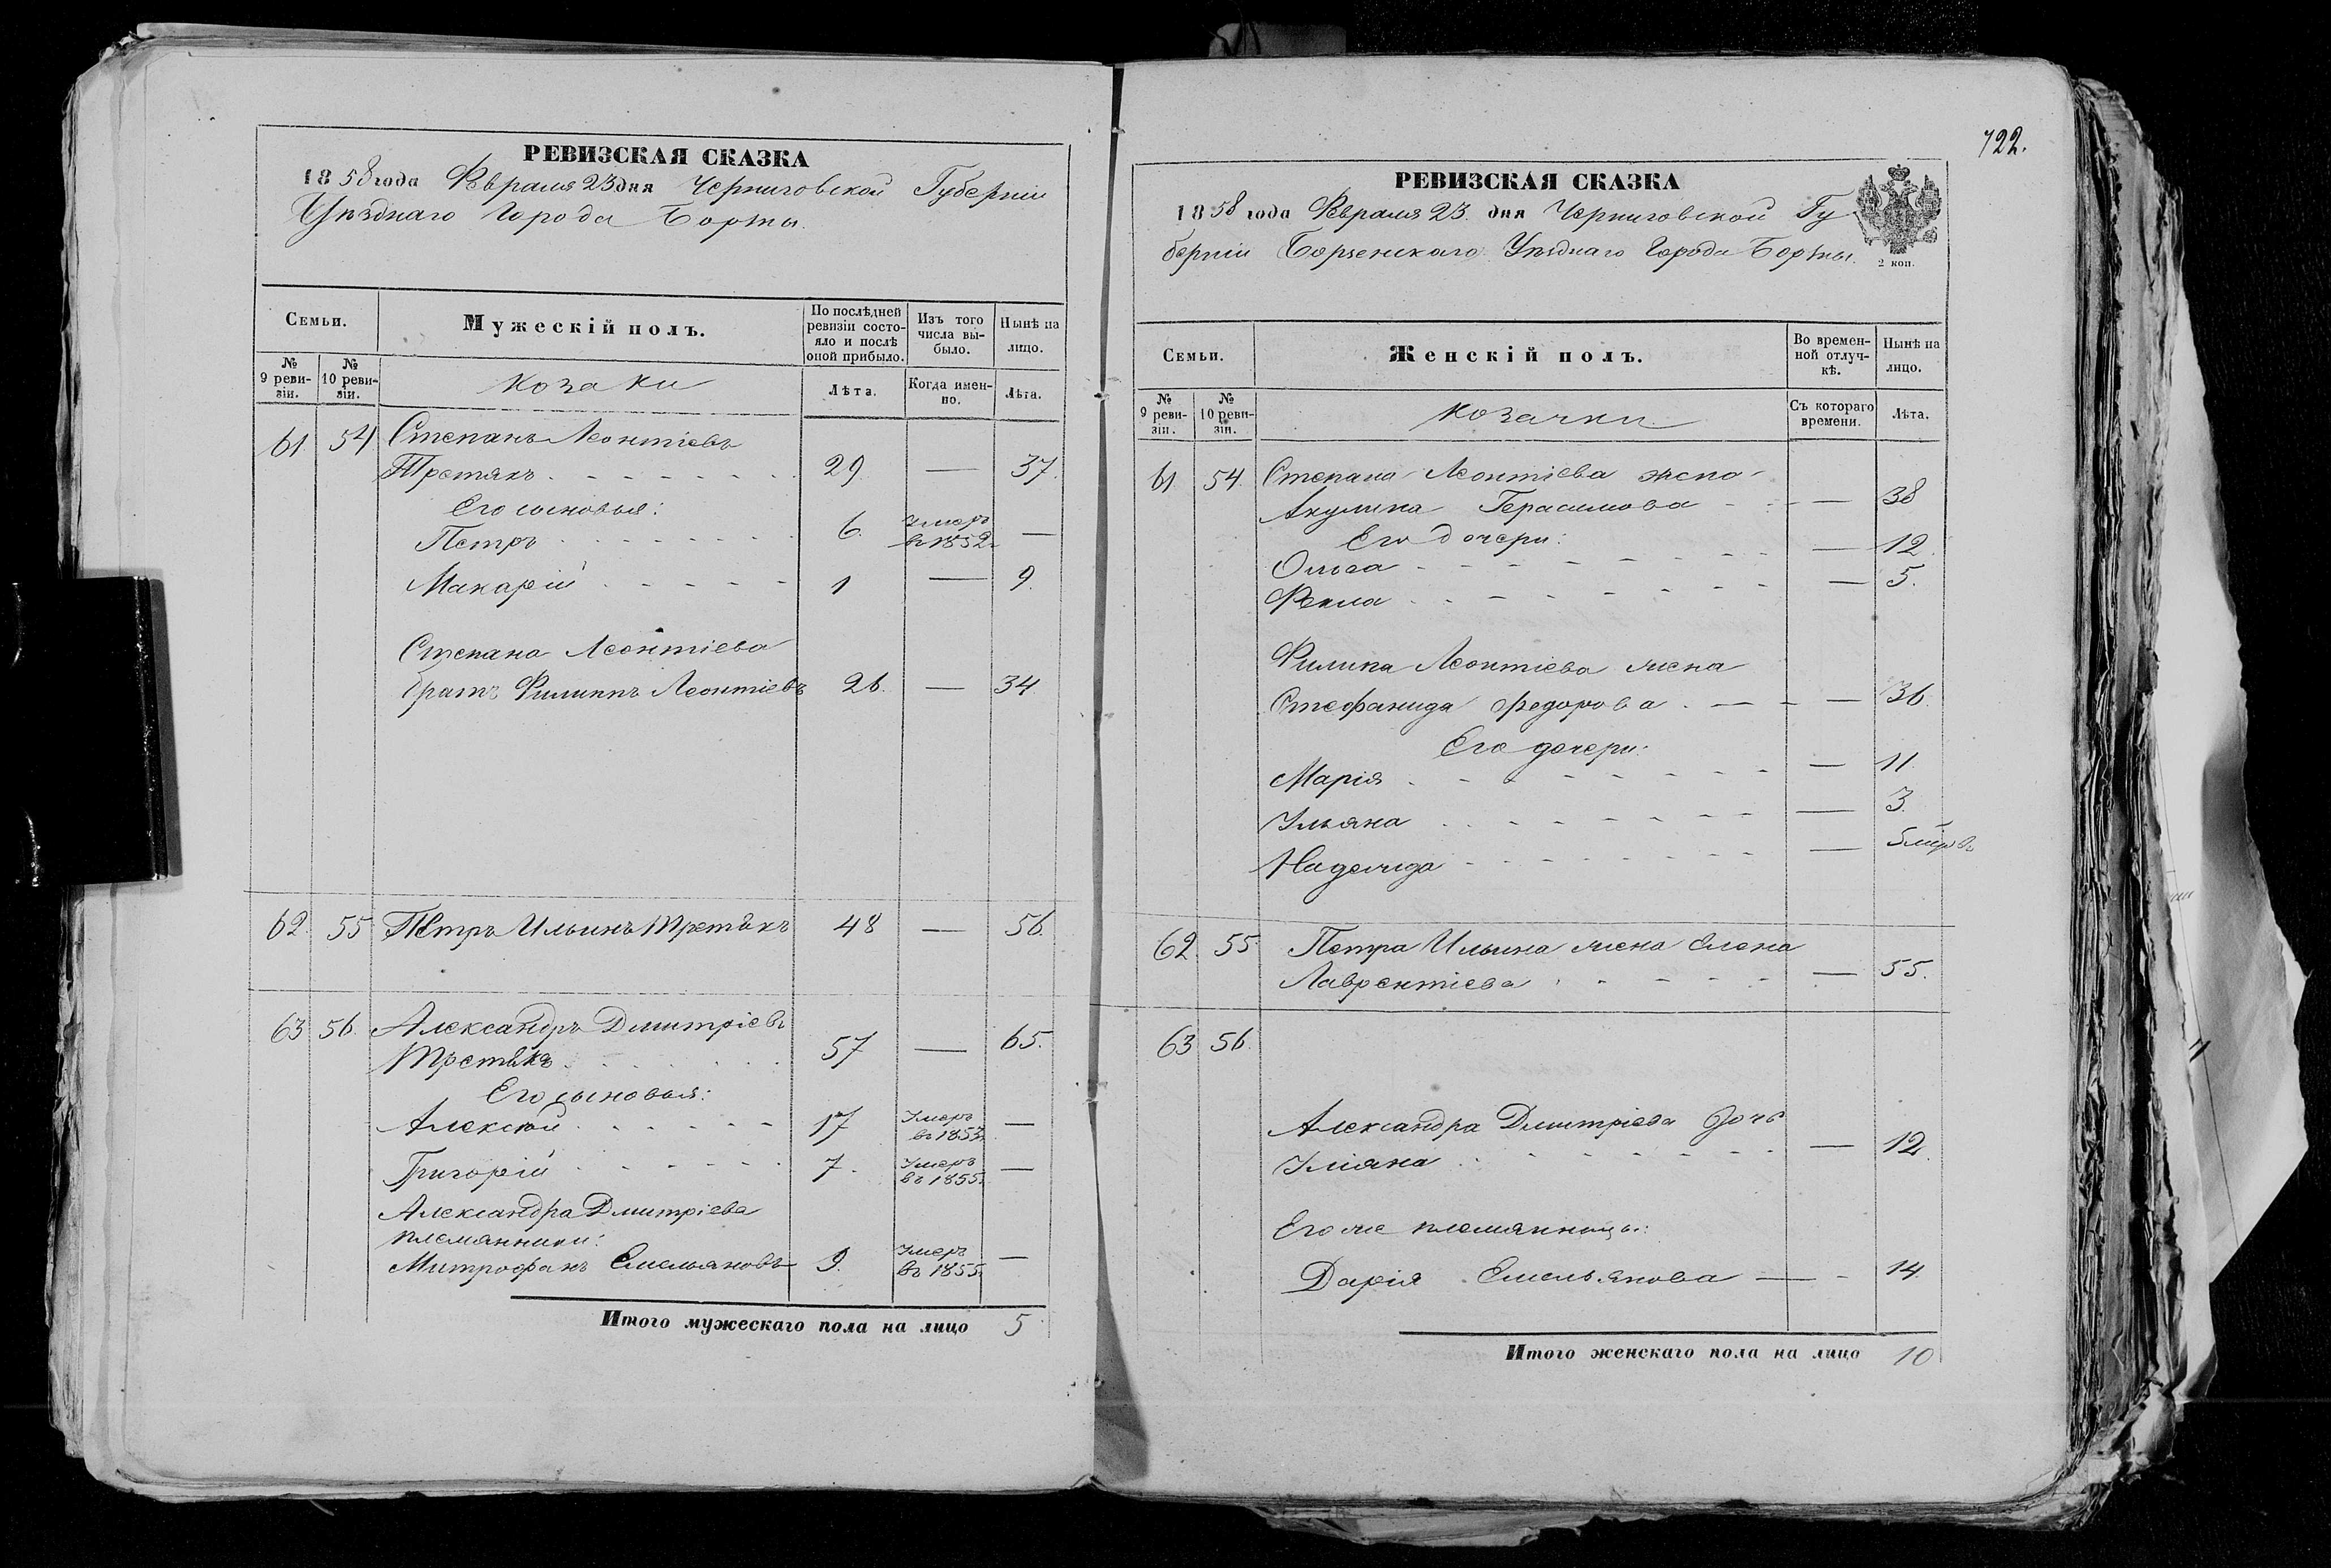 РЕВИЗСКАЯ СКАЗКА
1858 года Февраля 23 дня Черниговской Губерніи
Уѣзднаго Города Борзны.
Семьи.
Мужескій полъ.
По послѣдней ревизіи состояло и послѣ оной прибыло.
Изъ того числа выбыло.
Нынѣ на лицо.
№ 9 ревизіи.
№ 10 ревизіи.
Козаки
Лѣта.
Когда именно.
Лѣта.
61 54 Степанъ Леонтіевъ
Третякъ 29 — 37.
Его сыновья:
Петръ 6. Умеръ въ 1852 —
Макарій 1 — 9.
Степана Леонтіева
братъ Филиппъ Леонтіевъ 26. — 34
62. 55 Петръ Ильинъ Третякъ 48 — 56.
63 56. Александръ Дмитріевъ
Третякъ 57 — 65.
Его сыновья:
Алексѣй 17 Умеръ въ 1853 —
Григорій 7. Умеръ въ 1855. —
Александра Дмитріева
племянники:
Митрофанъ Емельяновъ 9. Умеръ въ 1855. —
Итого мужескаго пола на лицо 5
722.
РЕВИЗСКАЯ СКАЗКА
1858 года Февраля 23. дня Черниговской Гу
берніи Борзенскаго Уѣзднаго Города Борзны.
2 коп.
Семьи.
Женскій полъ.
Во временной отлучкѣ.
Нынѣ на лицо.
№ 9 ревизіи.
№ 10 ревизіи.
Козачки
Съ котораго времени.
Лѣта.
61 54. Степана Леонтіева жена
Акулина Герасимова — 38
Его дочери:
Ольга — 12.
Фекла — 5.
Филипа Леонтіева жена
Стефанида Федорова — 36.
Его дочери:
Марія — 11
Ульяна — 3.
Надежда —
62. 55. Петра Ильина жена Елена
Лаврентіева — 55.
63 56.
Александра Дмитріева дочь
Уліяна — 12.
Его же племянницы:
Дарія Емельянова — 14.
Итого женскаго пола на лицо 10